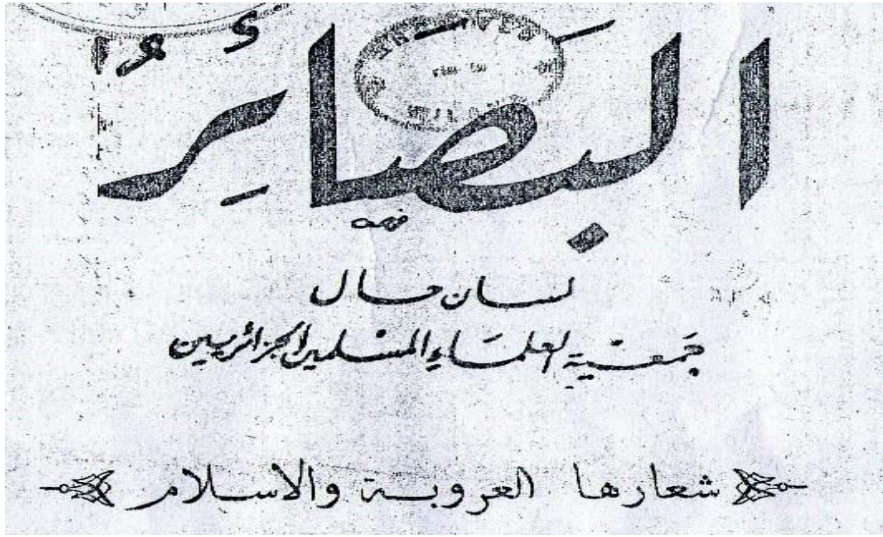 البَصَائِرُ
لسان حال
جَمعيَّة العلمَاءِ المسْلمين الجزائريين
شعارها العروبة والاسلام